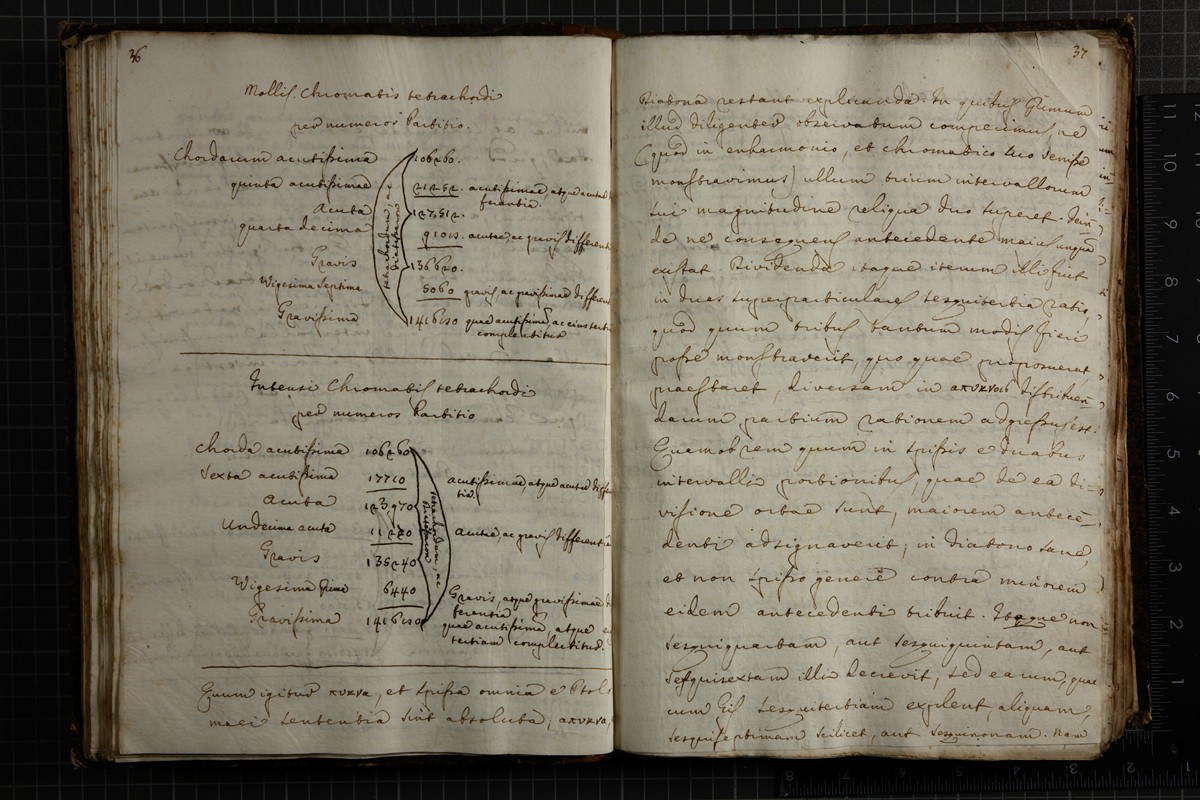 36
Mollis Chromatis tetrachordi
per numeros Partitio.
Chordarum acutissima 106260.
quinta acutissimae 21252. acutissimae, atque acutae
ferentia.
Acuta 127512.
quarta decima 9108. acutae, ac gravis differenti
Gravis 136620.
Vigesima septima 5060 gravis, ac gravissimae differen
Gravissima 141680 quae acutissimā, ac eius terti
complectitur
tetrachordum, ac
Diatessaron
Intensi Chromatis tetrachordi
per numeros Partitio
Chorda acutissima 106260
Sexta acutissima 17710 acutissimae, atque acutae diffe
tia.
Acuta 123970
Undecima acuta 11270 acutae, ac gravis differentia
Gravis 135240
Vigesima 6440 Gravis, atque gravissimae di
ferentia
Gravissima 141680 quae acutissimā, atque
tertiam complectitur.
tetrachordum, ac
Diatessaron
Quum igitur πυκνα, et spissa omnia e Ptole
maei sententia sint absoluta; απυκνα,
37
Diatona restant explicanda. In quibus
illud diligenter observatum comperimus, ne
(quod in enharmonio, et chromatico suo semper
monstravimus) ullum trium intervallorum
sui magnitudine reliqua duo superet. Dein
de ne consequens antecedente maius unquā
existat. Dividenda itaque iterum illi fuit
in duas superparticulares sesquitertia ratio,
quod quum tribus tantum modis fieri
posse monstraverit, quo quae proposuerat
praestaret, diversam in απυκνοις distribuen-
darum partium rationem adgressus est.
Quamobrem quum in spissis e duabus
intervalli portionibus, quae de ea di=
visione ortae sunt, maiorem antecē
denti adsignaverit; in Diatono sane,
et non spisso genere contra minorem
eidem antecedenti tribuit. Itaque non
sesquiquartam, aut sesquiquintam, aut
sesquisextam illi decrevit; sed earum, quae
cum his sesquitertiam explent, aliquam,
sesquiseptimam scilicet, aut sesquinonam. Nam